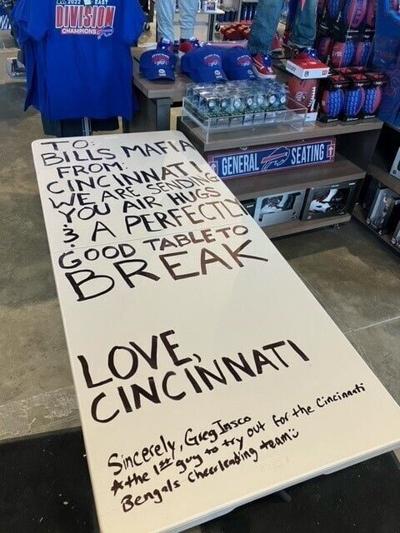 2022 EAST
DIVISION
CHAMPIONS
GENERAL SEATING
TO:
BILLS MAFIA
FROM:
CINCINNATI
WE ARE SENDING
YOU AIR HUGS
& A PERFECTLY
GOOD TABLE TO
BREAK
LOVE,
CINCINNATI
Sincerely, Greg Insco
*the 1st guy to try out for the Cincinnati
Bengals Cheerleading team